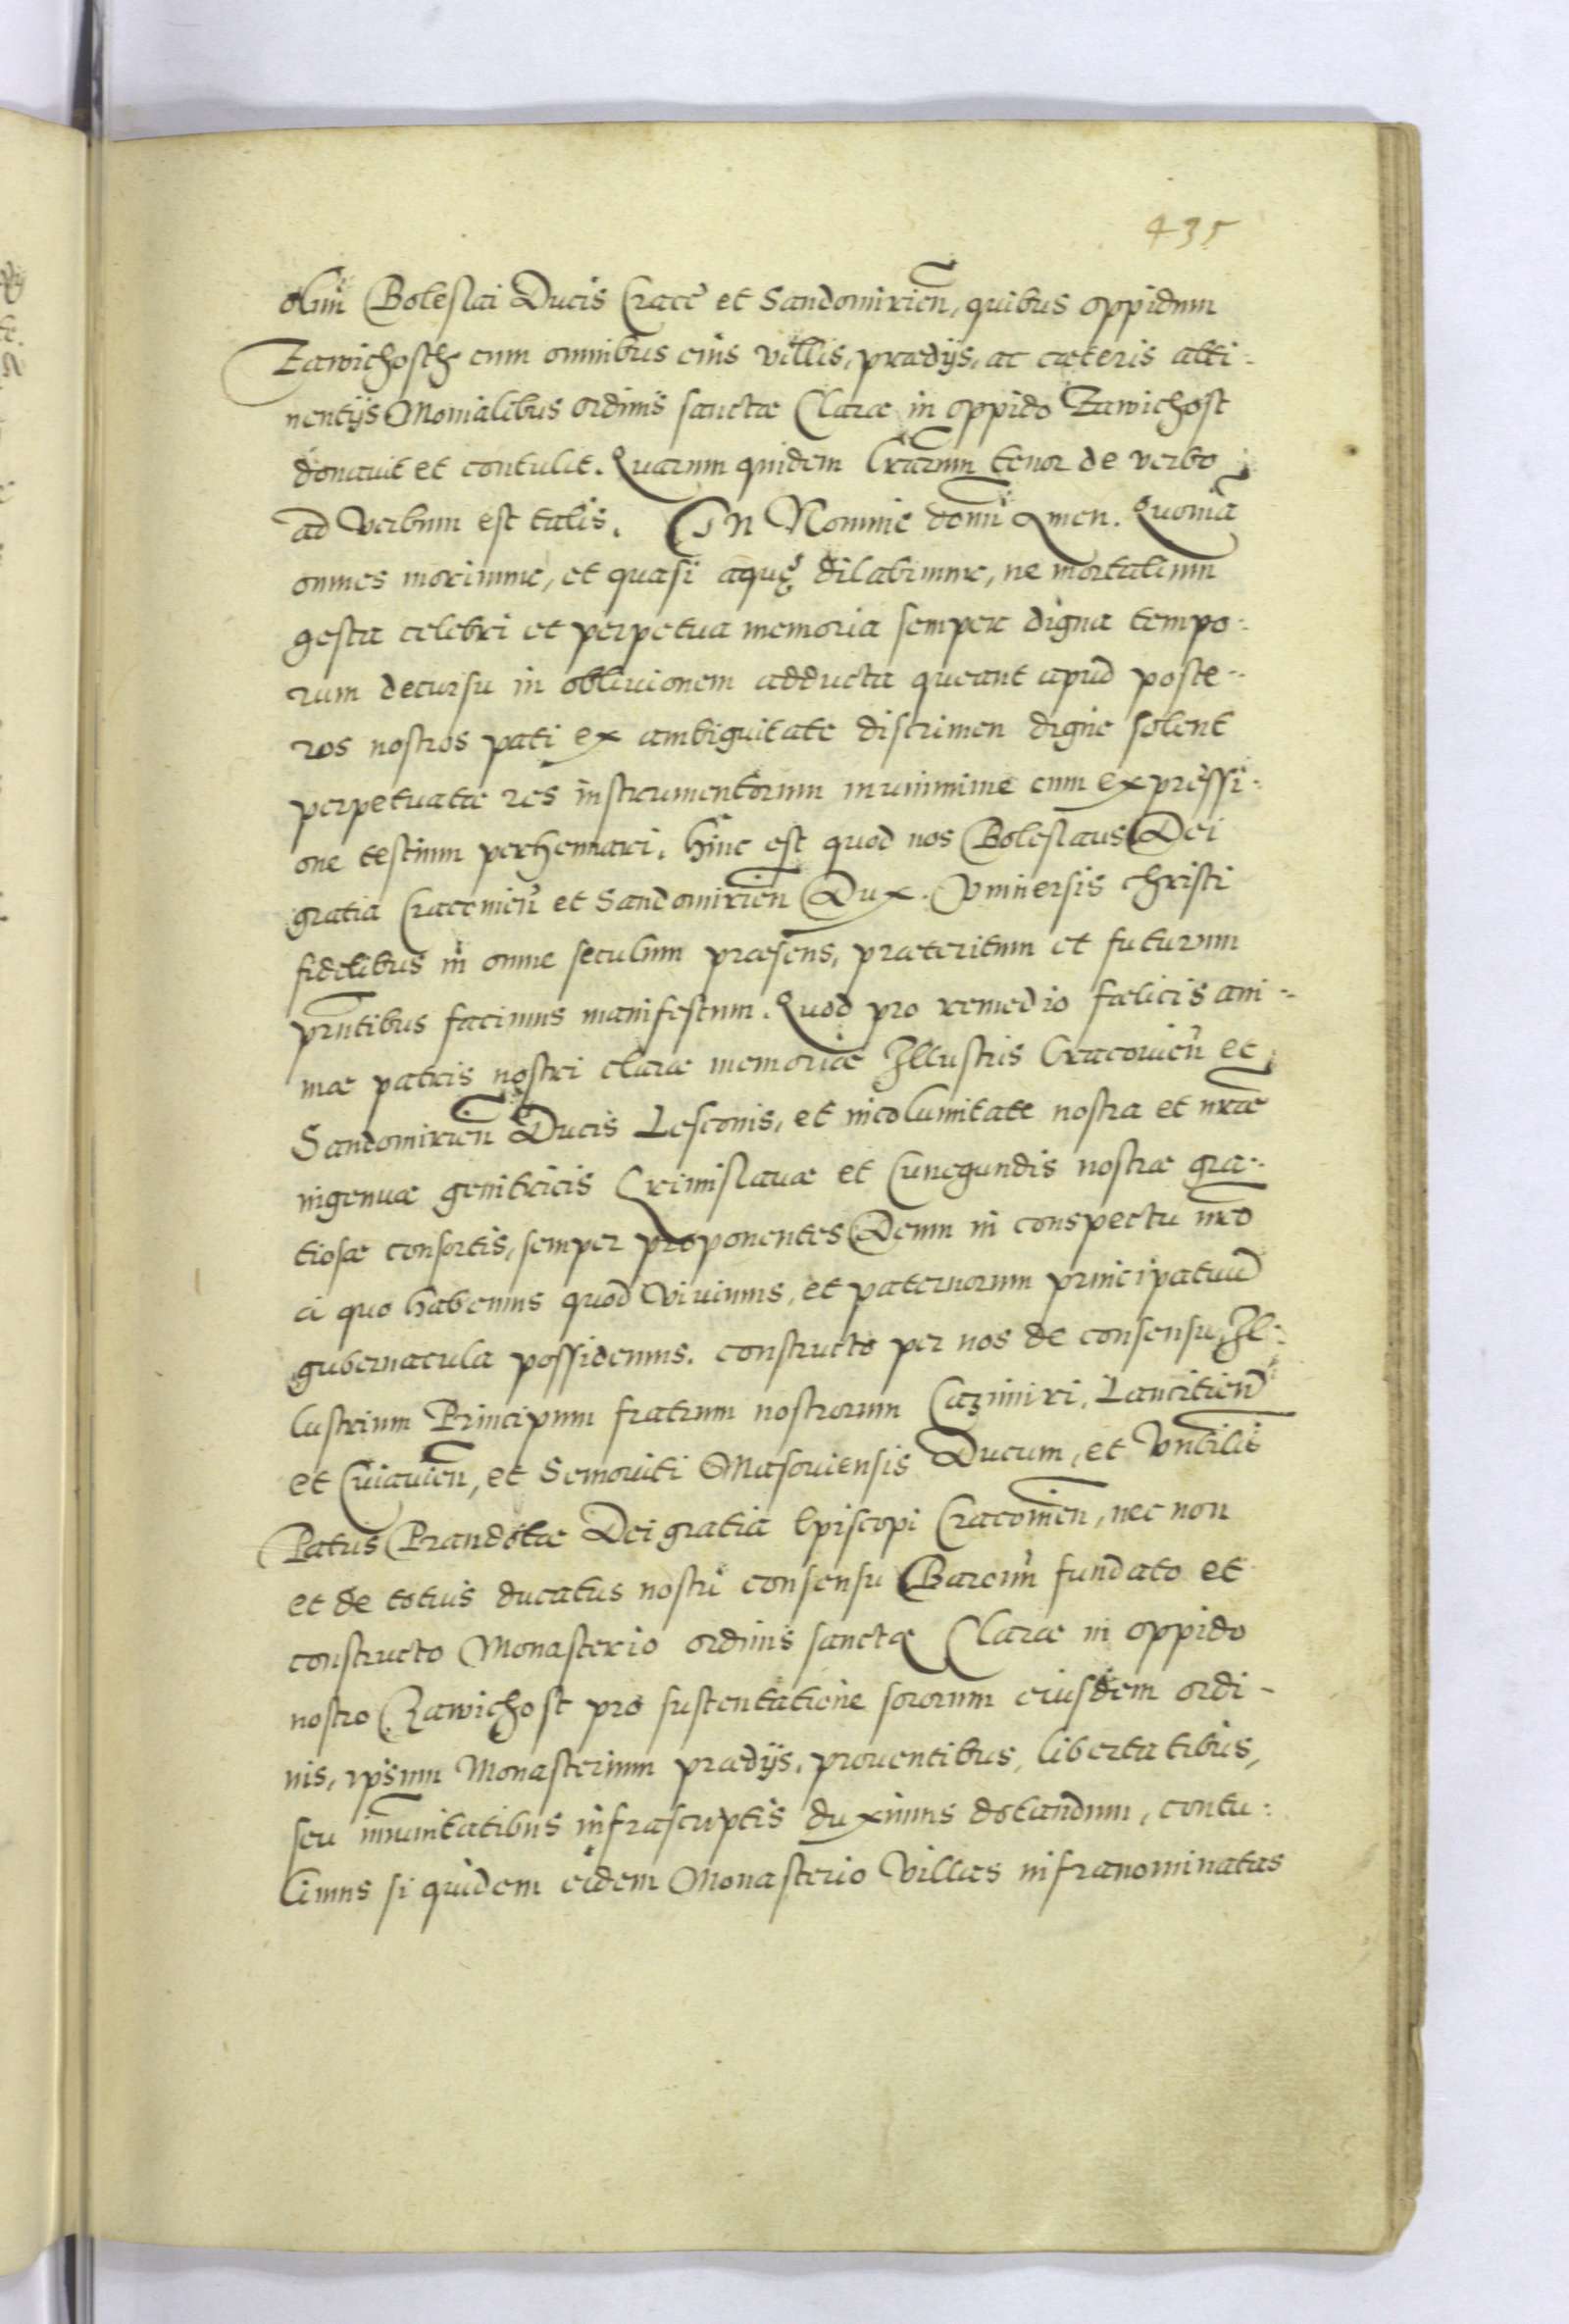 435
olim Boleslai Ducis Cracc et Sandomirien̄, quibus oppidum
Zawichosth cum omnibus eius villis, prædijs, ac cæteris atti-
nentijs Monialibus ordinis sanctæ Claræ in oppido Zawichost
donauit et contulit. Quarum quidem lr̄arum tenor de verbo
ad verbum est talis. IN Nomine domī Amen. Quoniā
omnes morimur, et quasi aquę dilabimur, ne mortalium
gesta celebri et perpetua memoria semper digna tempo-
rum decursu in obliuionem adducta queant apud poste-
ros nostros pati ex ambiguitate discrimen digne solent
perpetuatæ res instrumentorum munimine cum expressi-
one testium perhennari. Hinc est quod nos Boleslaus Dei
gratia Craccouien̄ et Sandomirien̄ Dux. Vniuersis christi
fidelibus in omne seculum præsens, præteritum et futurum
pr̄ntibus facimus manifestum. Quod pro remedio fælicis ani-
mæ patris nostri claræ memoriæ Illustris Cracouien̄ et
Sandomirien̄ Ducis Lesconis, et incolumitate nostra et nr̄æ
ingenuæ genitricis Grimislauæ et Cunegundis nostræ gra-
tiosæ consortis, semper proponentes Deum in conspectu nr̄o
a quo habemus quod viuimus, et paternorum principatuū
gubernacula possidemus. constructo per nos de consensu Il-
lustrium Principum fratrum nostrorum Cazimiri, Lancitien̄
et Cuiauien̄, et Semouiti Masouiensis Ducum, et Vn̄bilis
Patris Prandotæ Dei gratia Episcopi Cracouien̄, nec non
et de totius ducatus nostri consensu Baronū fundato et
constructo Monasterio ordinis sanctæ Claræ in oppido
nostro Zawichost pro sustentatione sororum eiusdem ordi-
nis, ipsum Monasterium prædijs, prouentibus, libertatibus,
seu im̄unitatibus infrascriptis duximus dotandum, contu-
limus si quidem eidem Monasterio Villas infranominatas